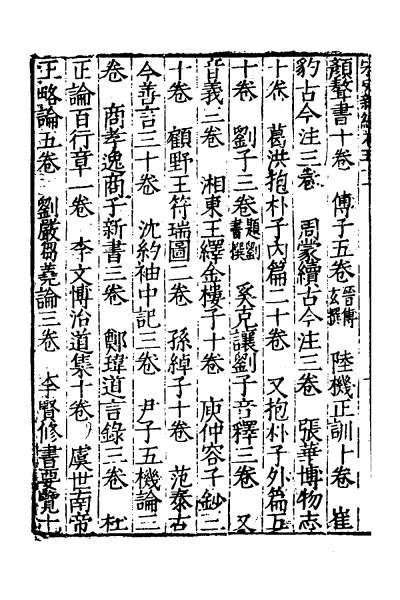 顏䜿書十卷　傅子五卷晉傅玄撰　陸機正訓十卷　崔
豹古今注三卷　周蒙續古今注三卷　張華博物志
十卷　葛洪抱朴子內篇二十卷　又抱朴子外篇五
十卷　劉子三卷題劉晝撰　奚克讓劉子音釋三卷　又
音義三卷　湘東王繹金樓子十卷　庾仲容子鈔三
十卷　顧野王符瑞圖二卷　孫綽子十卷　范泰古
今善言三十卷　沈約袖中記三卷　尹子五機論三
卷　商孝逸商子新書三卷　鄭瑋道言錄三卷　杜
正論百行章一卷　李文博治道集十卷　虞世南帝
王略論五卷　劉嚴芻蕘論三卷　李賢修書要覽十